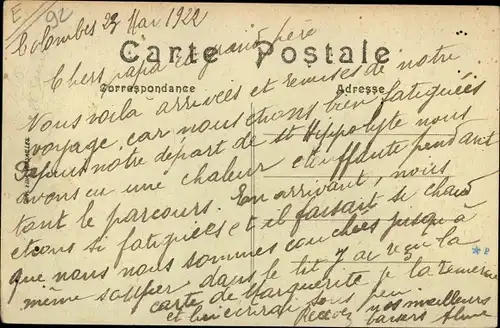 E/92
Colombes 23 Mai 1922
Carte Postale
Chers papa et grand père
Correspondance
Adresse
Nous voilà arrivées et remises de notre
voyage, car nous étions bien fatiguées
depuis notre départ de St Hippolyte nous
avons eu une chaleur étouffante pendant
tout le parcours. En arrivant, nous
étions si fatiguées et il faisait si chaud
que nous nous sommes couchées jusqu'à
même souper dans le lit J'ai reçu la
carte de Marguerite je la remercie
et lui écrirai sous peu.
Recevez nos meilleurs
baisers